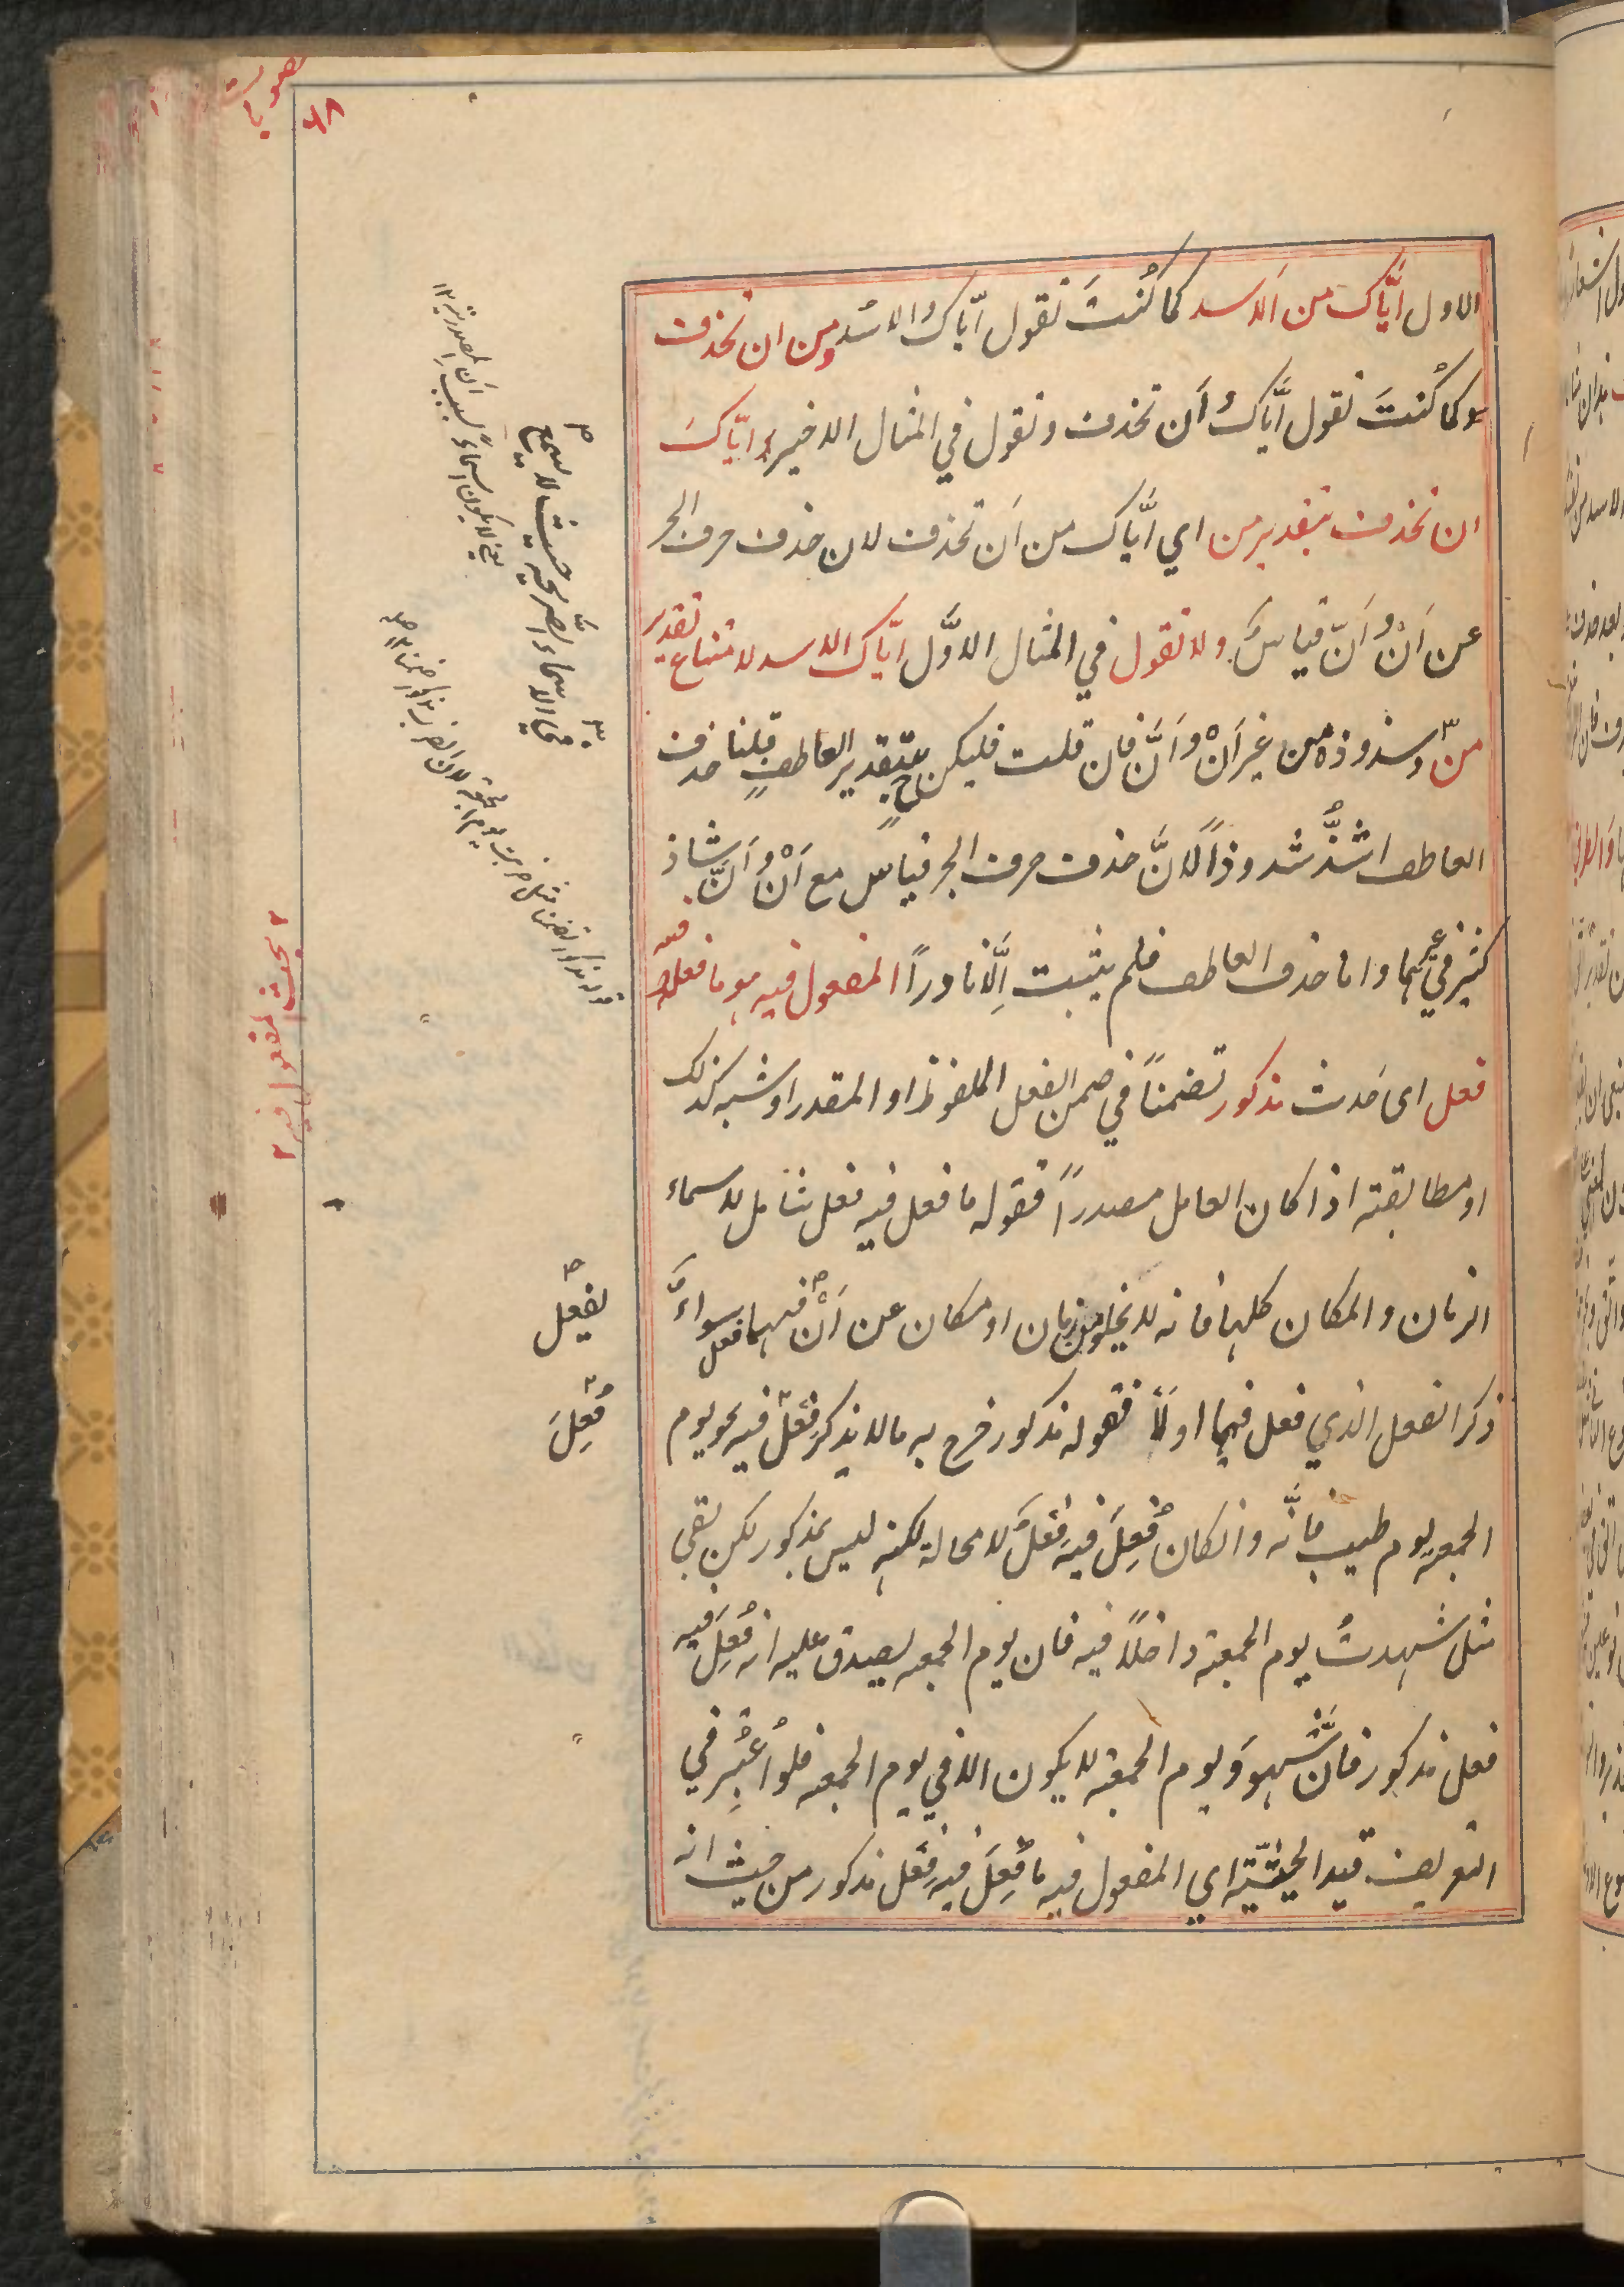 الاول اِیَّاکَ من الاَسد کما کُنتَ تقول ایّاک والاسد ومن ان تحذف
وکما کُنتَ تقول ایَّاکَ وَاَن تحذف وتقول في المثال الاخیر ایّاکَ
ان تحذف بتقدیر من اي ایَّاک من اَن تحذف لان حذف حرف الجر
عن اَنْ وَاَنّ قیاسٌ ولا تقول في المثال الاوَّل ایّاک الاسد لامتناع تقدیر
من وشذوذه من غیر اَنْ واَنَّ فان قلت فلیکن بتقدیر العاطف قلنا حذف
العاطف اشذُّ شذوذاً لانَّ حذف حرف الجر قیاس مع اَنْ وَاَنَّ شاذ
کثیر في غیرهما واما حذف العاطف فلم یثبت اِلَّا نادراً المفعول فیه هو ما فعل فیه
فعل ای حَدث مذکور تضمناً في ضمن الفعل الملفوظ او المقدر او شبه کذلک
او مطابقة اذا کان العامل مصدراً فقوله ما فعل فیه فعل شامل لاسماء
الزمان والمکان کلها فانه لا یخلو من زمان او مکان عن اَنْ فیهما فعل سواءٌ
ذکر الفعل الذي فعل فیها اولاً فقوله مذکور خرج به ما لا یذکر فِعلٌ فیه نحو یوم
الجمعه یوم طیب فانَّه وانکان فُعِلَ فیه فِعْلٌ لا محالة لکنه لیس بمذکور لکن بقي
مثل شهدتُ یوم الجمعة داخلاً فیه فان یوم الجمعه یصدق علیه انه فُعِلَ فیه
فعل مذکور فانَّ شهود یوم الجمعة لا یکون الا في یوم الجمعه فلو اُعتُبِر في
التعریف قید الحیثیّة اي المفعول فیه ما فُعِلَ فیه فِعْل مذکور من حیث انه
لا یسمع
في الاسماء الصریحة حیث
یفعل
فُعِلَ
بحث المفعول فیه